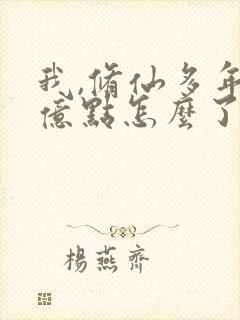 我,脩仙多年
億點怎麼了
楊燕齊